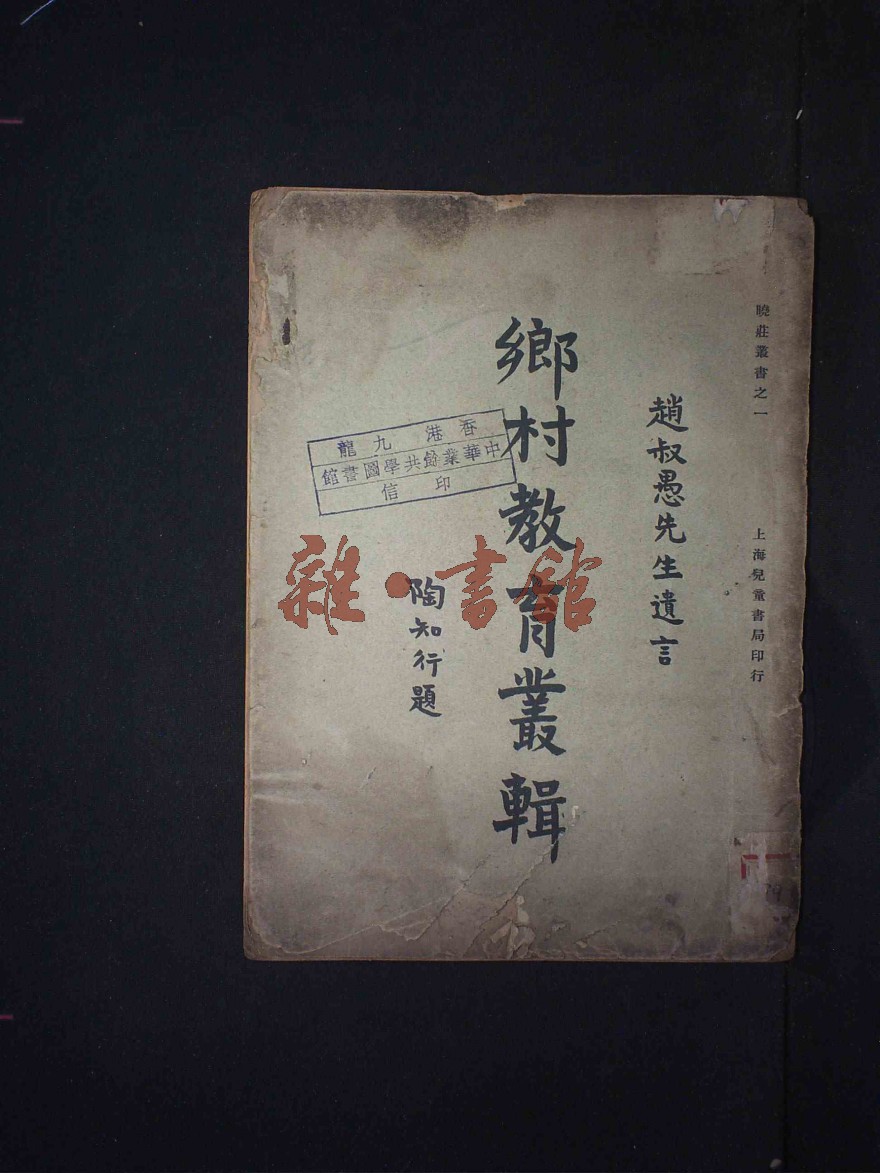 曉莊叢書之一
上海兒童書局印行
趙叔愚先生遺言
鄉村教育叢輯
陶知行題
香港九龍
中華業餘共學圖書館
印信
雜·書館